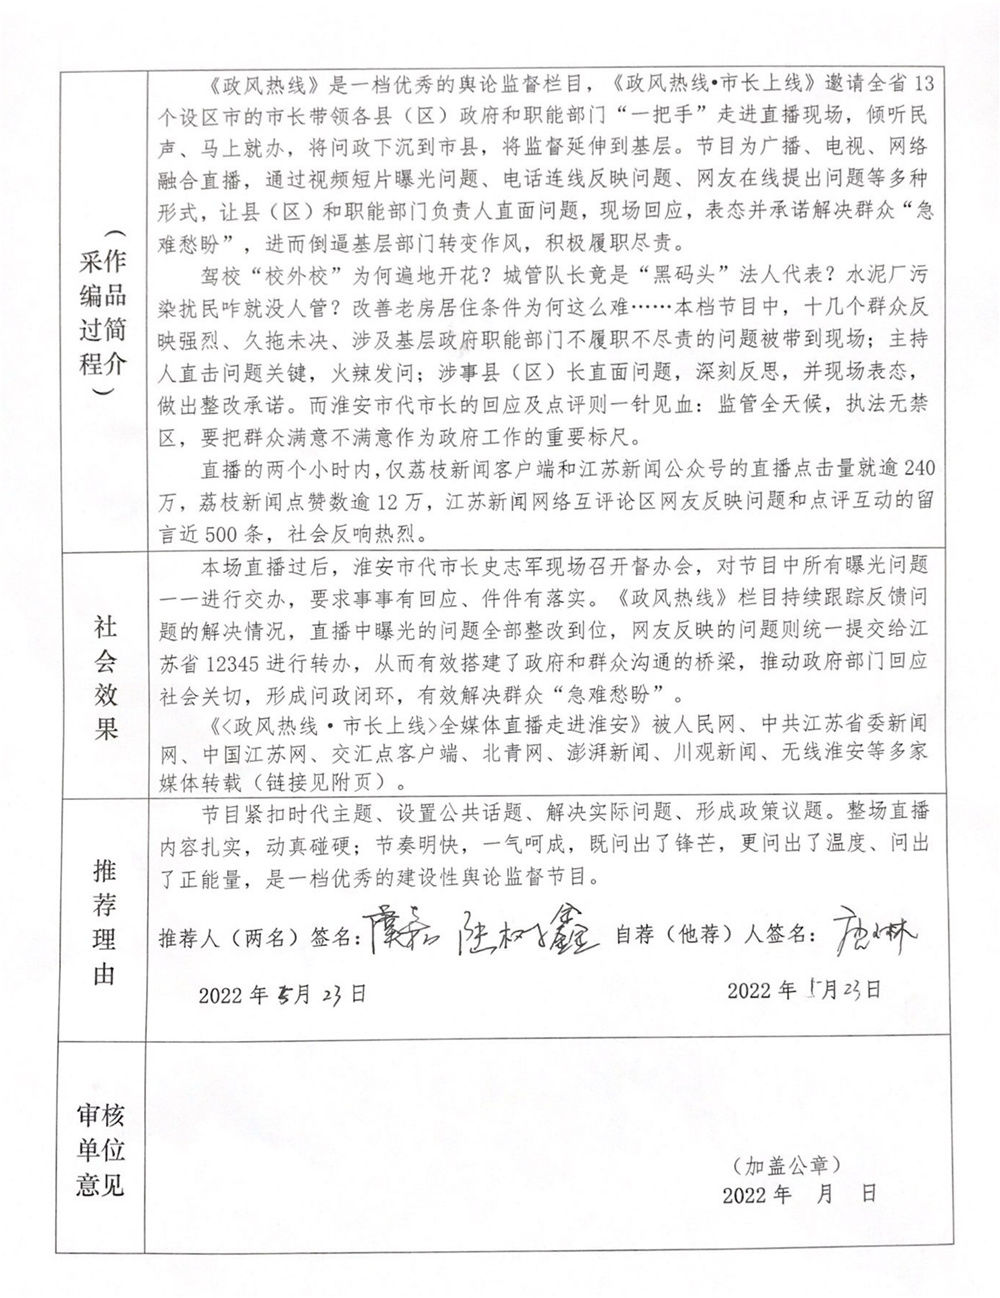 《政风热线》是一档优秀的舆论监督栏目，《政风热线•市长上线》邀请全省 13
个设区市的市长带领各县（区）政府和职能部门“一把手”走进直播现场，倾听民
声、马上就办，将问政下沉到市县，将监督延伸到基层。节目为广播、电视、网络
融合直播，通过视频短片曝光问题、电话连线反映问题、网友在线提出问题等多种
形式，让县（区）和职能部门负责人直面问题，现场回应，表态并承诺解决群众“急
难愁盼”，进而倒逼基层部门转变作风，积极履职尽责。
驾校“校外校”为何遍地开花？城管队长竟是“黑码头”法人代表？水泥厂污
染扰民咋就没人管？改善老房居住条件为何这么难……本档节目中，十几个群众反
映强烈、久拖未决、涉及基层政府职能部门不履职不尽责的问题被带到现场；主持
人直击问题关键，火辣发问；涉事县（区）长直面问题，深刻反思，并现场表态，
做出整改承诺。而淮安市代市长的回应及点评则一针见血：监管全天候，执法无禁
区，要把群众满意不满意作为政府工作的重要标尺。
直播的两个小时内，仅荔枝新闻客户端和江苏新闻公众号的直播点击量就逾 240
万，荔枝新闻点赞数逾 12 万，江苏新闻网络互评论区网友反映问题和点评互动的留
言近 500 条，社会反响热烈。
（作品简介
采编过程）
本场直播过后，淮安市代市长史志军现场召开督办会，对节目中所有曝光问题
一一进行交办，要求事事有回应、件件有落实。《政风热线》栏目持续跟踪反馈问
题的解决情况，直播中曝光的问题全部整改到位，网友反映的问题则统一提交给江
苏省 12345 进行转办，从而有效搭建了政府和群众沟通的桥梁，推动政府部门回应
社会关切，形成问政闭环，有效解决群众“急难愁盼”。
《<政风热线·市长上线>全媒体直播走进淮安》被人民网、中共江苏省委新闻
网、中国江苏网、交汇点客户端、北青网、澎湃新闻、川观新闻、无线淮安等多家
媒体转载（链接见附页）。
社会效果
节目紧扣时代主题、设置公共话题、解决实际问题、形成政策议题。整场直播
内容扎实，动真碰硬；节奏明快，一气呵成，既问出了锋芒，更问出了温度、问出
了正能量，是一档优秀的建设性舆论监督节目。
推荐理由
推荐人（两名）签名： 陆树鑫 自荐（他荐）人签名：
2022 年 5 月 23 日 2022 年 5 月 23 日
审核
单位
意见
（加盖公章）
2022 年 月 日